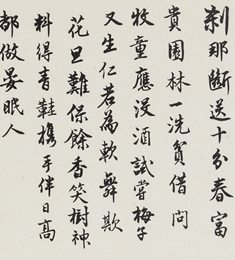 剎那斷送十分春富
貴園林一洗貧借問
牧童應沒酒試嘗梅子
又生仁若為軟舞欺
花旦難保餘香笑樹神
料得青鞋攜手伴日高
都做晏眠人